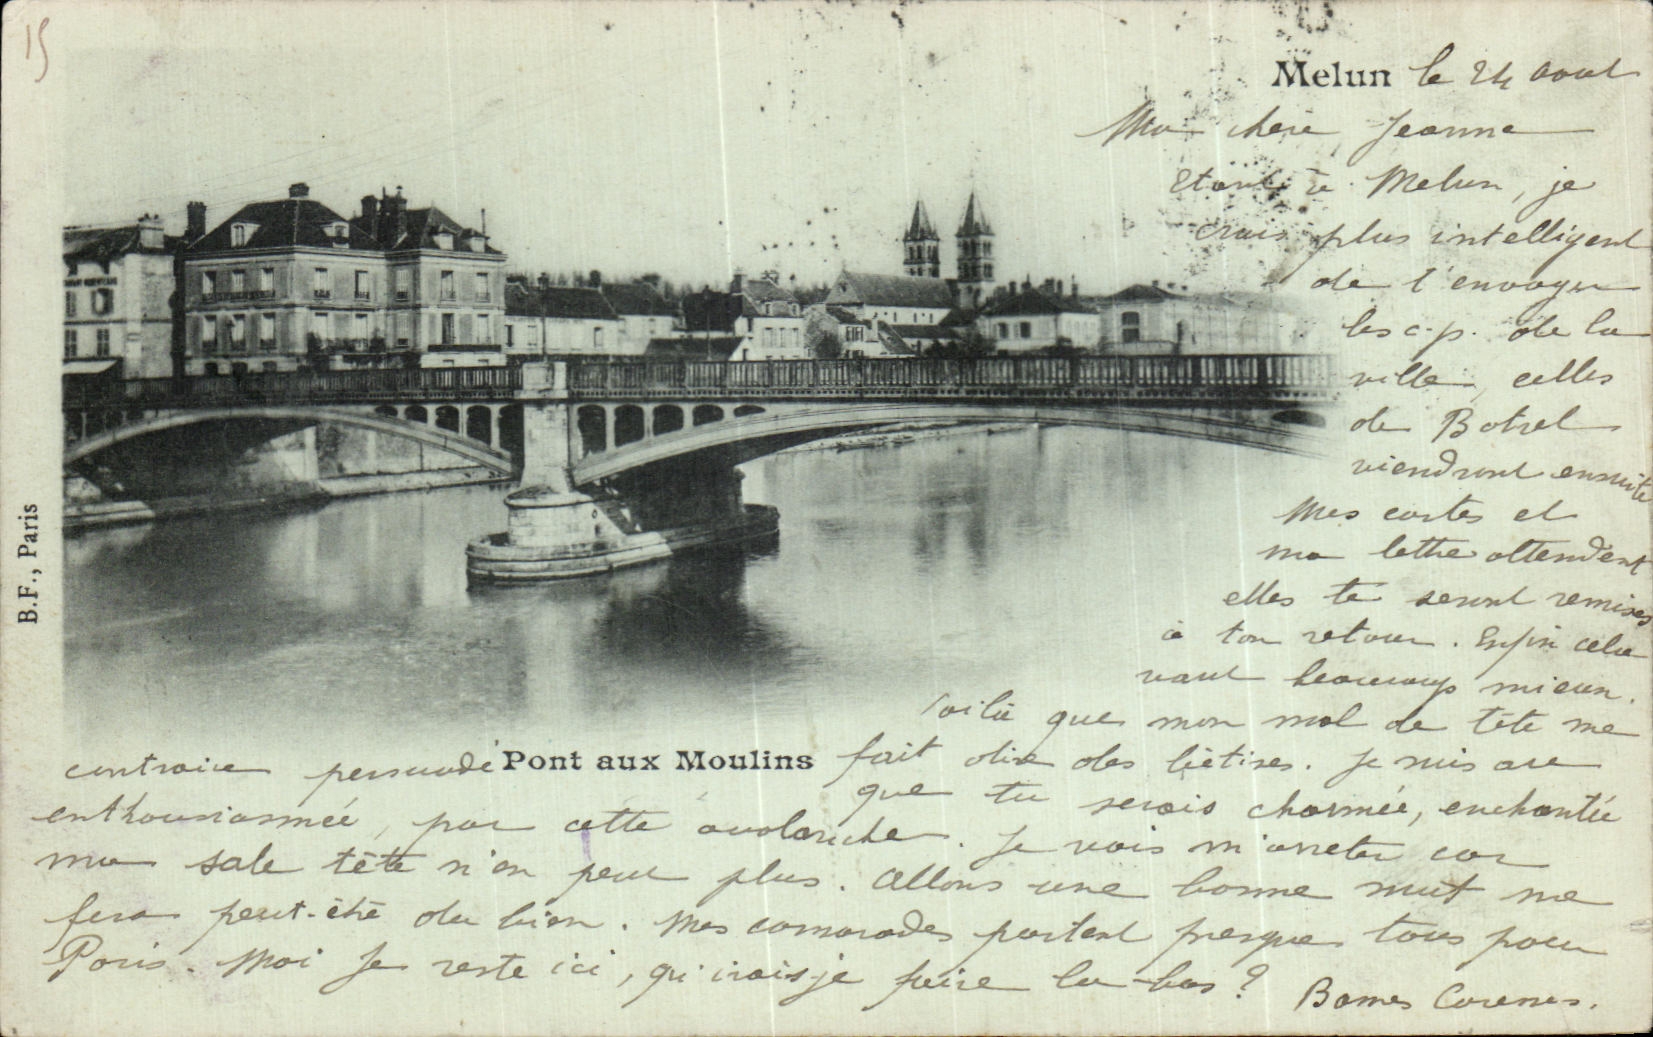 15
Melun le 24 Aout
Ma chère Jeanne
Etant à Melun, je
crois plus intelligent
de t'envoyer
les c.p. de la
ville, celles
de Botrel
viendront ensuite
Mes cartes et
ma lettre attendent
elles te seront remises
à ton retour. Enfin cela
vaut beaucoup mieux.
Voilà que mon mal de tête me
fait dire des bêtises. Je suis au
contraire persuadé
Pont aux Moulins
que tu serais charmée, enchantée
enthousiasmée, par cette avalanche. Je vais m'arreter car
ma sale tête n'en peut plus. Allons une bonne nuit me
fera peut-être du bien. Mes camarades partent presque tous pour
Paris. Moi je reste ici, qu'irais-je faire la-bas? Bonnes Caresses.
B.F., Paris